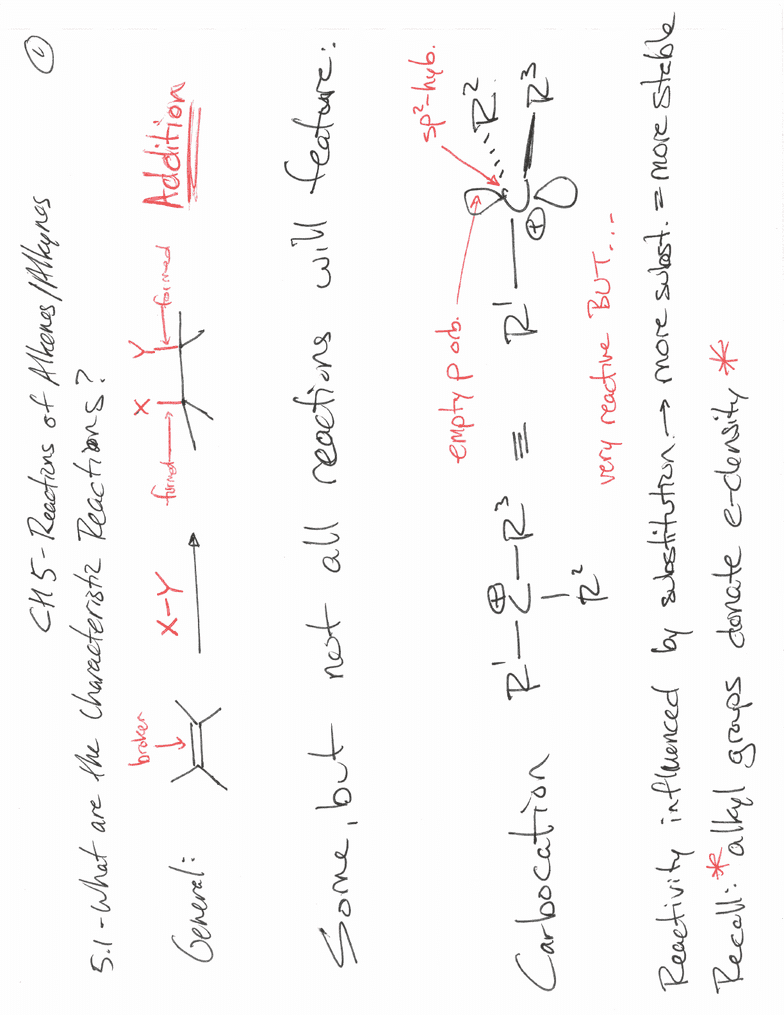 CH 5 - Reactions of Alkenes/Alkynes
①
5.1 - What are the Characteristic Reactions?
General:
broken
X-Y
formed
X
Y
formed
Addition
Some, but not all reactions will feature:
Carbocation
R¹-C-R³
⊕
R²
≡
empty p orb.
sp²-hyb.
R¹
C
⊕
R²
R³
very reactive BUT...
Reactivity influenced by substitution → more subst. = more stable
Recall: * alkyl groups donate e-density *